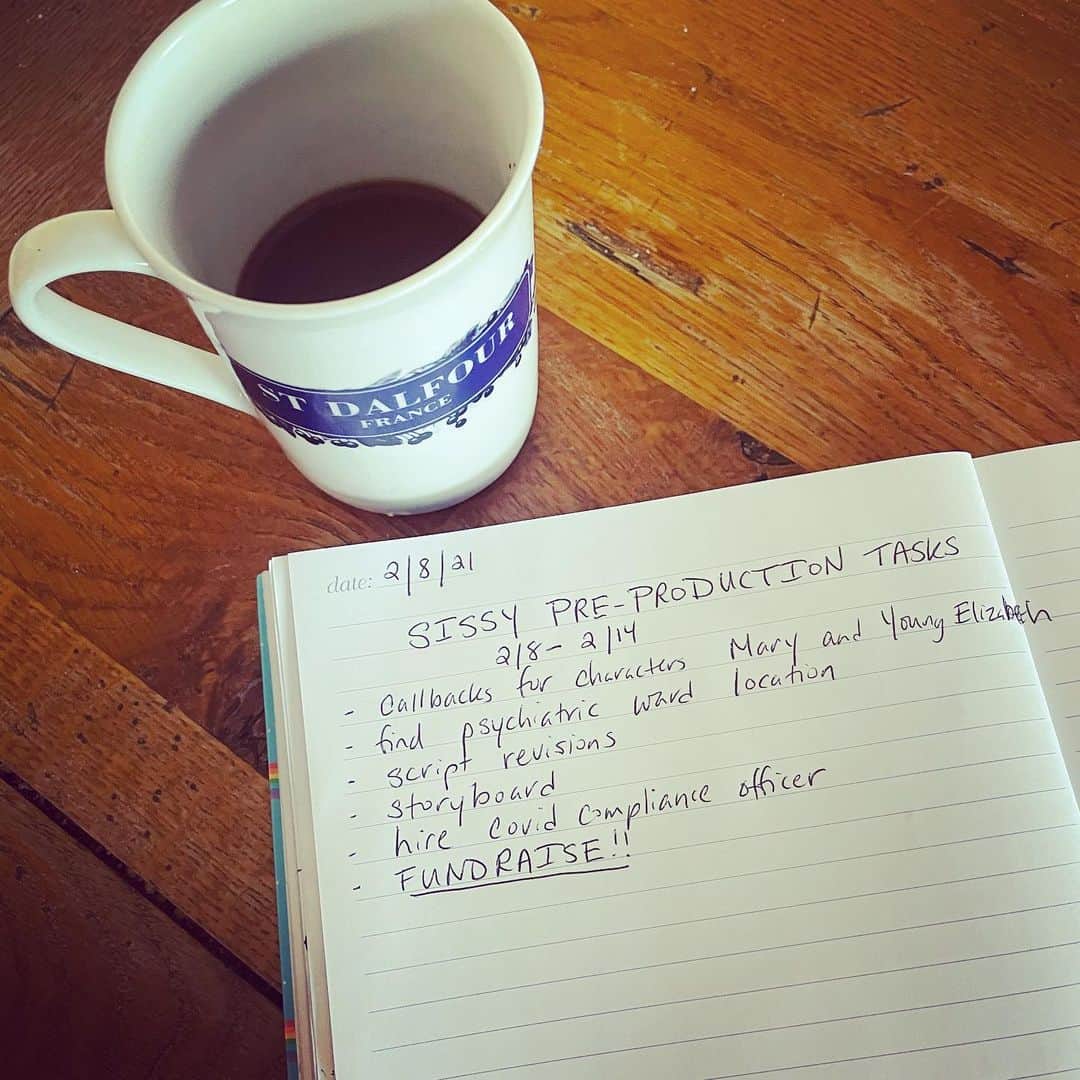 ST DALFOUR
FRANCE
date: 2/8/21
SISSY PRE-PRODUCTION TASKS
2/8 - 2/14
- Callbacks for characters Mary and Young Elizabeth
- find psychiatric ward location
- script revisions
- storyboard
- hire Covid compliance officer
- FUNDRAISE!!